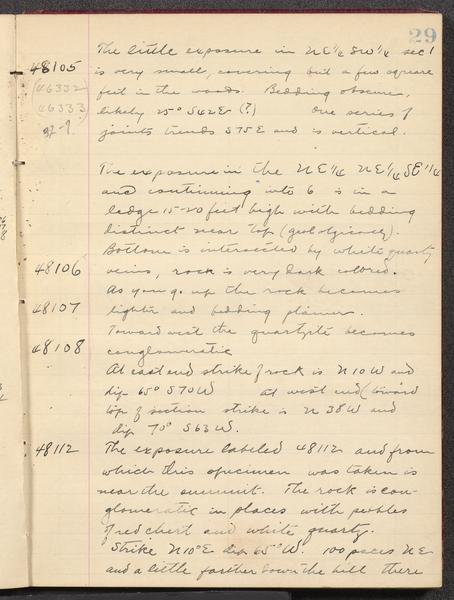 29
The little exposure in NE¼ SW¼ sec 1
48105 is very small, covering but a few square
(46332) feet in the woods. Bedding obscure,
46333 likely 25° S42E (?) One series of
joints trends S75E and is vertical.
The exposure in the NE¼ NE¼ SE¼
and continuing into 6 is in a
ledge 15-20 feet high with bedding
distinct near top
Bottom is intersected by white quartz
48106 veins, rock is very dark colored.
As you go up the rock becomes
48107 lighter and bedding plainer.
Toward west the quartzite becomes
48108 conglomeratic
At east end strike of rock is N10W and
dip 65° S70W at west end (toward
top of section strike is N38W and
dip 70° S63W.
48112 The exposure labeled 48112 and from
which this specimen was taken is
near the summit. The rock is con-
glomeratic in places with pebbles
of red chert and white quartz.
Strike N10°E dip 65°W. 100 paces NE
and a little farther down the hill there